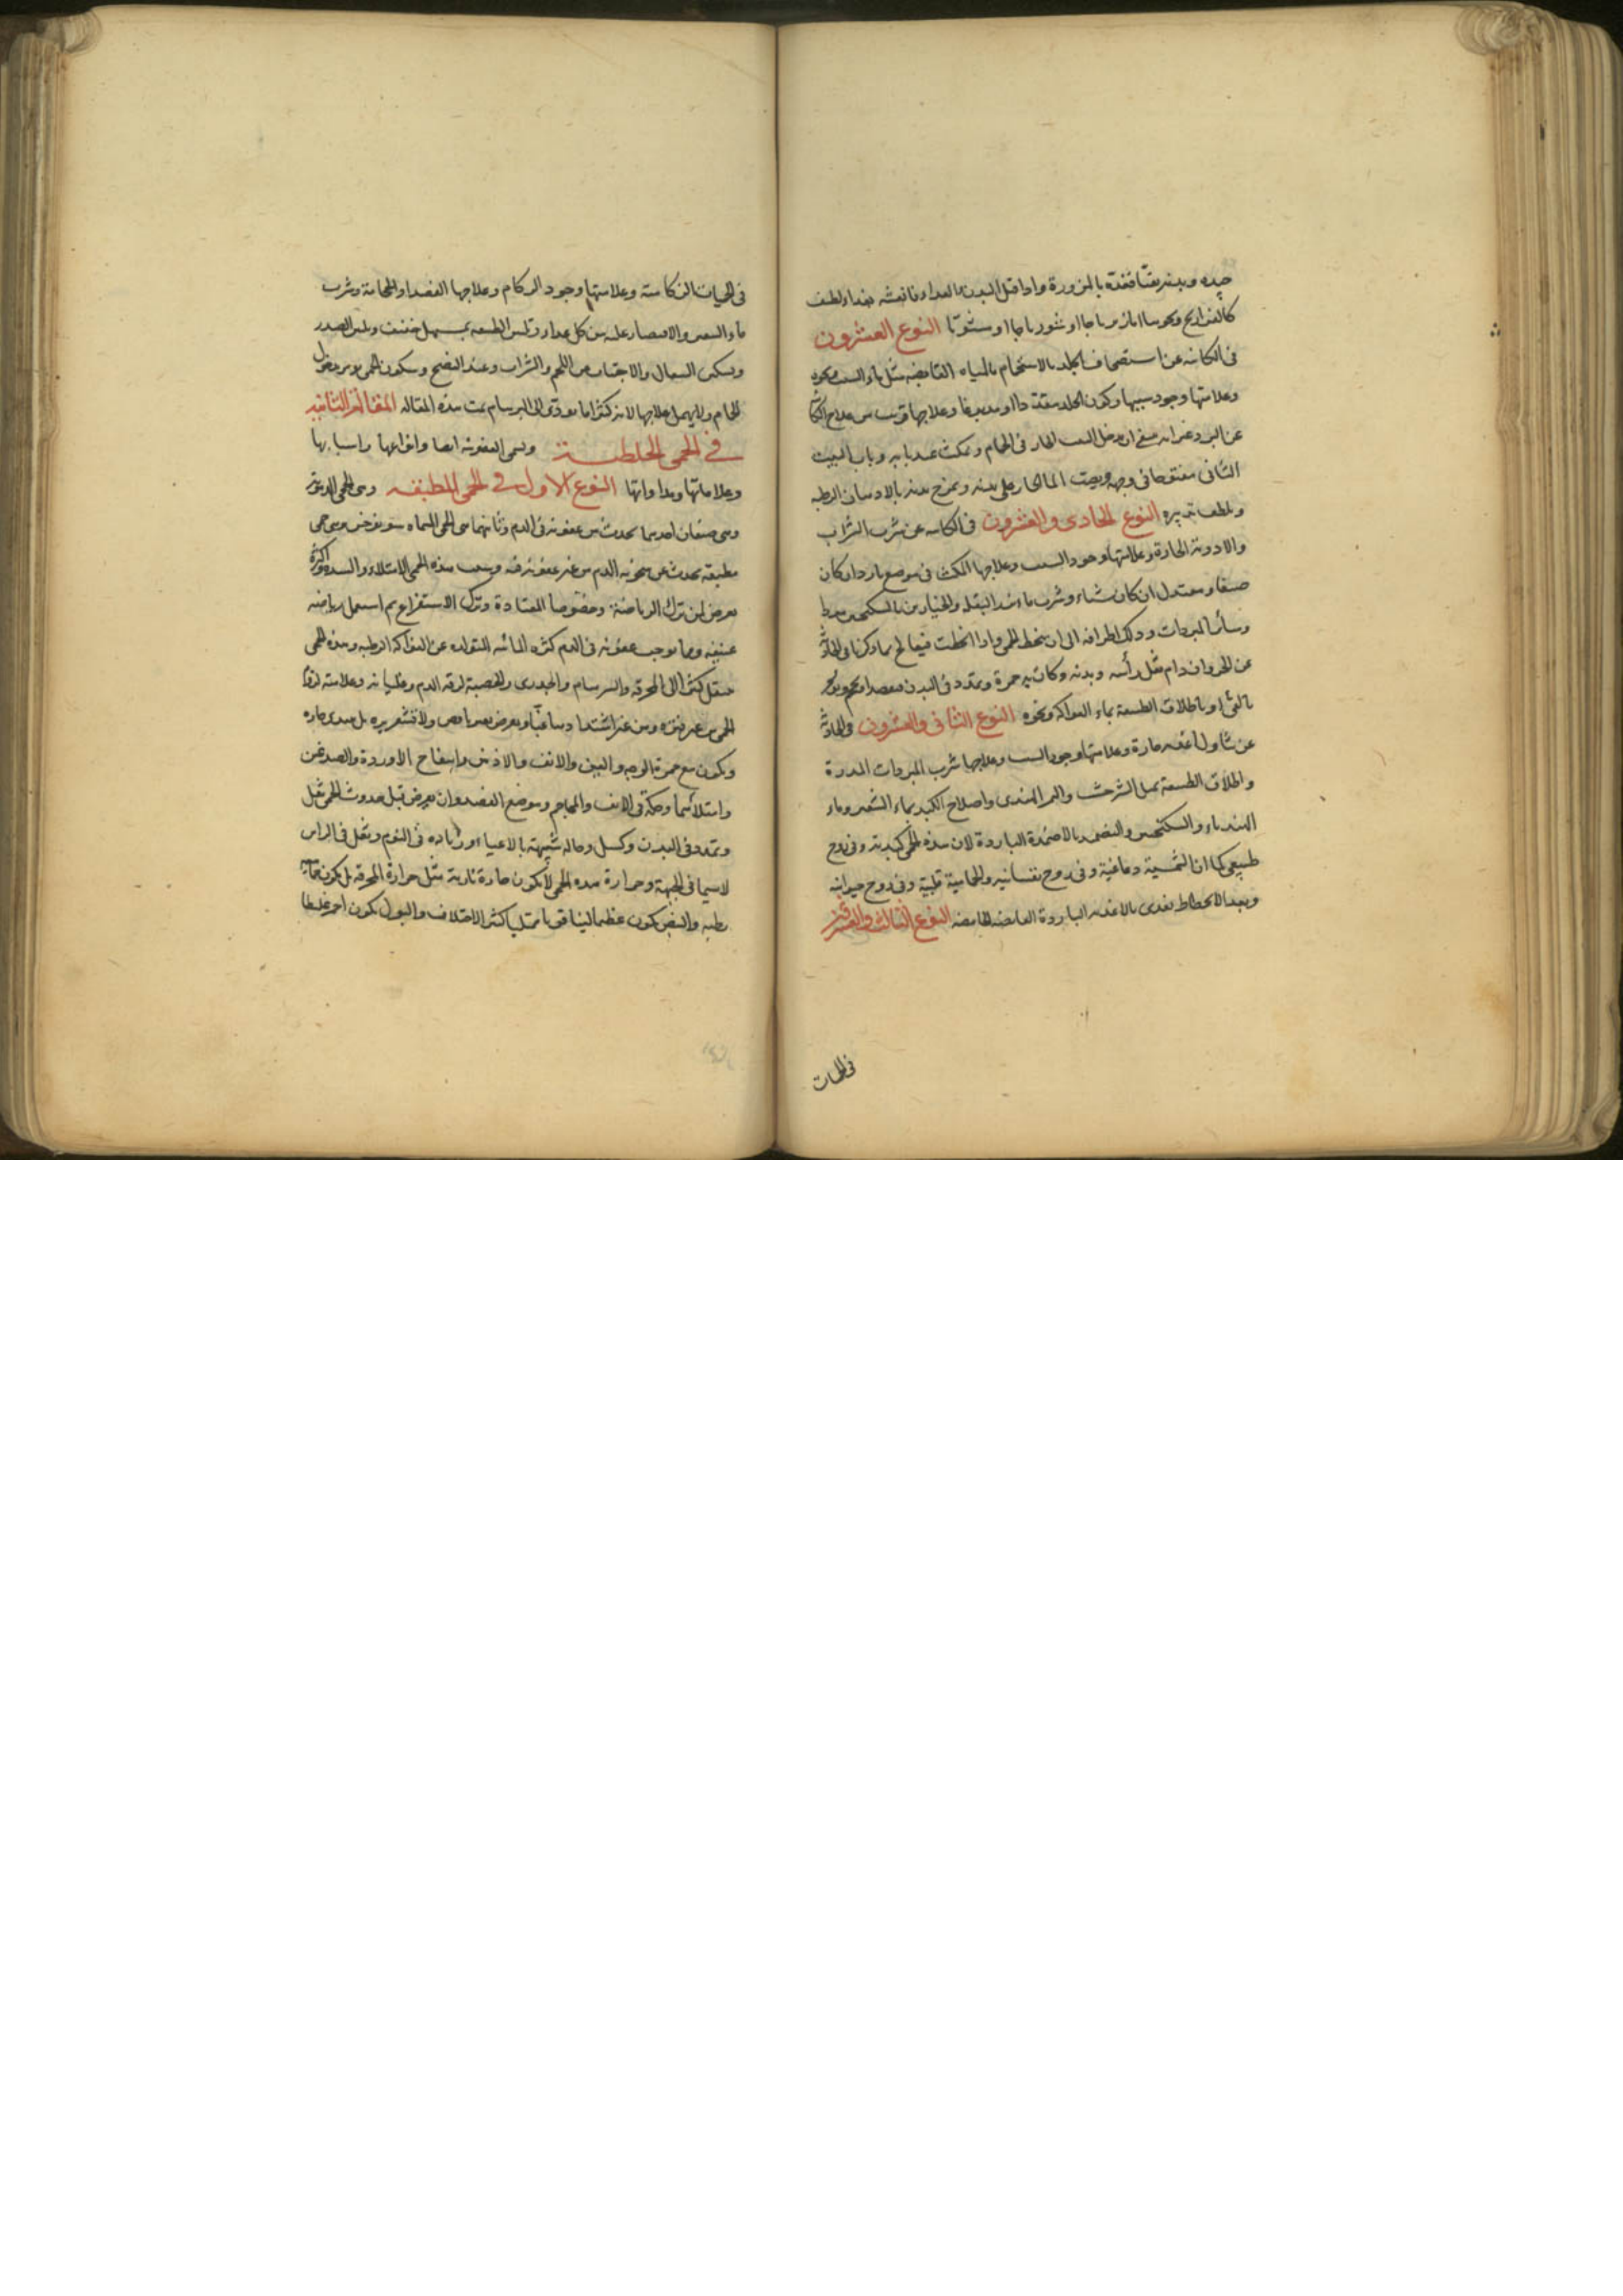 جيده وبدنه نقيا فغذه بالمزورة واذا قبل البدن الغداء فانعشه بغداء لطيف
كالفراريج ونحوها اما زيرباجا او شورباجا او مشويا النوع العشرون
فى الكائنة عن استحصاف الجلد بالاستحمام بالمياه القابضه مثل ماء الشب ونحوه
وعلامتها وجود سببها وكون الجلد متقددا او مدبوغا وعلاجها قريب من علاج الكائنة
عن البرد غير انه ينبغى ان يدخل البيت الحار فى الحمام ويمكث عند بابه وباب البيت
الثانى مفتوحا فى وجهه ويصب الماء الحار على بدنه ويمرخ بدنه بالادهان الرطبه
ويلطف تدبيره النوع الحادى والعشرون فى الكائنه عن شرب الشراب
والادوية الحارة وعلامتها وجود السبب وعلاجها المكث فى موضع بارد ان كان
صيفا ومعتدل ان كان شتاء وشرب ماء بزر البقلة والخيارين بالسكنجبين
وسائر المبردات ودلك اطرافه الى ان ينحط الحمى واذا انحطت فيعالج بما ذكرنا فى الحادثة
عن الحر وان دام ثقل رأسه وبدنه وكان به حمرة وتمدد فى البدن فيفصد او يحجم
بالقئ او باطلاق الطبيعة بماء الفواكه ونحوه النوع الثانى والعشرون فى الحادثة
عن تناول اغذيه حارة وعلامتها وجود السبب وعلاجها شرب المبردات المدرة
واطلاق الطبيعة بمثل الشيرخشت والتمر الهندى واصلاح الكبد بماء الشعير وماء
الهندباء والسكنجبين والتضميد بالاضمدة الباردة لان هذه الحمى كبدية وفى روح
طبيعى كما ان الشمسية دماغية وفى روح نفسانيه والحمامية قلبية وفى روح حيوانيه
وبعد الانحطاط يغدى بالاغذيه الباردة القابضه الحامضه النوع الثالث والعشرون
فى الحميات
فى الحميات الزكامية وعلامتها وجود الزكام وعلاجها الفصد او الحجامة وشرب
ماء الشعير والاقتصار عليه من كل غداء وتليين الطبيعه بمسهل خفيف وتليين الصدر
وتسكين السعال والاجتناب من اللحم والشراب وعند النضج وسكون الحمى يؤمر بدخول
الحمام ولا يهمل علاجها لانه كثيرا ما يؤدى الى البرسام تمت هذه المقاله المقالة الثانية
فى الحمى الخلطية وتسمى العفونية ايضا وانواعها واسبابها
وعلاماتها ومداواتها النوع الاول فى الحمى المطبقه وهى الحمى الدموية
وهى صنفان احديهما يحدث من عفونة فى الدم وثانيهما هى الحمى المسماه سونوخس وهى حمى
مطبقه يحدث عن سخونه الدم من غير عفونة فيه وسبب هذه الحمى الامتلاء والسدد واكثره
يعرض لمن ترك الرياضة وخصوصا المعتادة وترك الاستفراغ ثم استعمل رياضه
عنيفه ومما يوجب عفونة فى الدم كثره المائيه المتولده عن الفواكه الرطبه وهذه الحمى
ينتقل كثيرا الى المحرقه والسرسام والجدرى والحصبة لرقه الدم وغليانه وعلامته لزوم
الحمى من غير فتره ومن غير اشتداد غبا ولا يعرض معها نافض ولا قشعريره بل يبتدى حاره
ويكون مع حمرة الوجه والعين والانف والاذن وانتفاخ الاوردة والصدغين
وامتلائهما وحكة فى الانف والمحاجم وموضع الفصد وان يعرض قبل حدوث الحمى ثقل
وتمدد فى البدن وكسل وحاله شبيهة بالاعياء وزياده فى النوم وثقل فى الراس
لاسيما فى الجبهة وحرارة هذه الحمى لا يكون حادة نارية مثل حرارة المحرقه بل يكون بخارية
رطبه والنبض يكون عظيما لينا قويا ممتليا كثير الاختلاف والبول يكون احمر غليظا